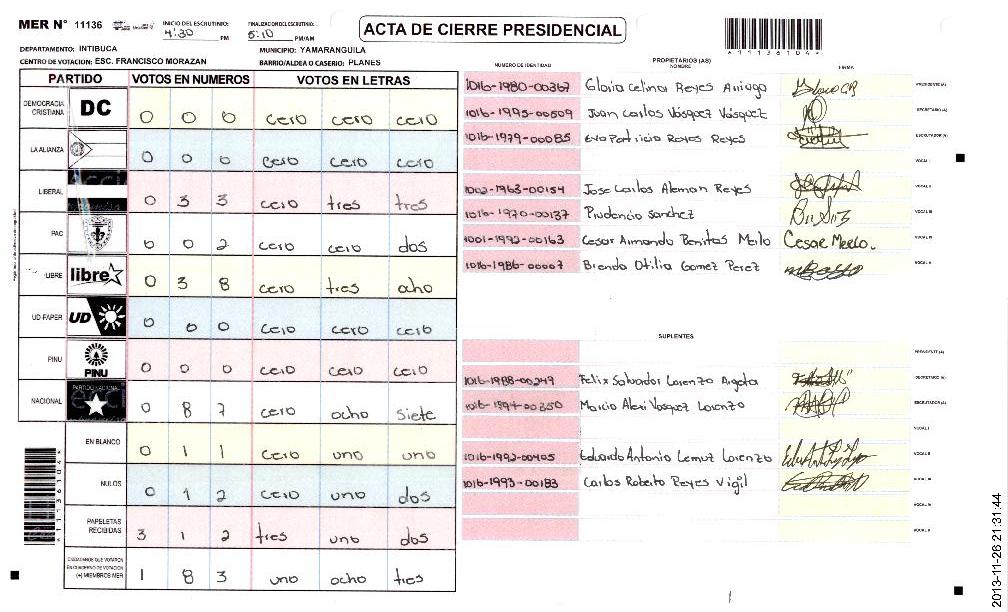 MER N° 11136
INICIO DEL ESCRUTINIO: 4:30 PM
FINALIZACION DEL ESCRUTINIO: 5:10 PM/AM
ACTA DE CIERRE PRESIDENCIAL
*11136104*
DEPARTAMENTO: INTIBUCA
MUNICIPIO: YAMARANGUILA
CENTRO DE VOTACION: ESC. FRANCISCO MORAZAN
BARRIO/ALDEA O CASERIO: PLANES
PARTIDO VOTOS EN NUMEROS VOTOS EN LETRAS
DEMOCRACIA CRISTIANA DC 0 0 0 cero cero cero
LA ALIANZA 0 0 0 cero cero cero
LIBERAL 0 3 3 cero tres tres
PAC 0 0 2 cero cero dos
LIBRE libre 0 3 8 cero tres ocho
UD-FAPER UD 0 0 0 cero cero cero
PINU PINU 0 0 0 cero cero cero
NACIONAL PARTIDO NACIONAL 0 8 7 cero ocho siete
EN BLANCO 0 1 1 cero uno uno
NULOS 0 1 2 cero uno dos
PAPELETAS RECIBIDAS 3 1 2 tres uno dos
CIUDADANOS QUE VOTARON EN CUADERNO DE VOTACION (+) MIEMBROS MER 1 8 3 uno ocho tres
*11136104*
PROPIETARIOS (AS)
NUMERO DE IDENTIDAD NOMBRE FIRMA
1016-1980-00367 Gloria Celina Reyes PRESIDENTE (A)
1016-1995-00509 Juan Carlos Vásquez Vásquez SECRETARIO (A)
1016-1979-00085 Eva Patricia Reyes Reyes ESCRUTADOR (A)
VOCAL I
1002-1963-00154 Jose Carlos Aleman Reyes VOCAL II
1016-1970-00137 Prudencio Sanchez VOCAL III
1001-1992-00163 Cesar Armando Benitas Merlo Cesar Merlo. VOCAL IV
1016-1986-00007 Brenda Otilia Gomez Perez VOCAL V
SUPLENTES
PRESIDENTE (A)
1016-1988-00249 Felix Salvador Lorenzo SECRETARIO (A)
1016-1994-00350 Alexi Vasquez Lorenzo ESCRUTADOR (A)
VOCAL I
1016-1992-00405 Eduardo Antonio Lemuz Lorenzo VOCAL II
1016-1993-00183 Carlos Roberto Reyes Vigil VOCAL III
VOCAL IV
VOCAL V
2013-11-26 21:31:44